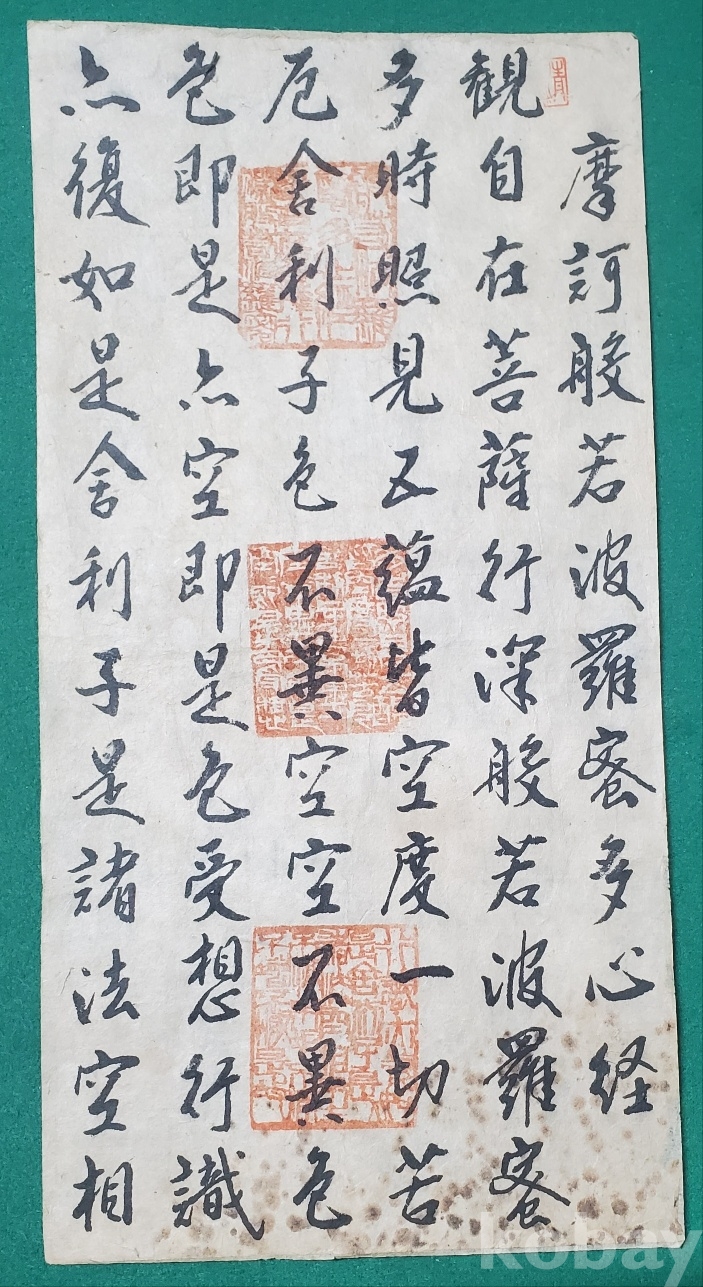 摩訶般若波羅蜜多心経
観自在菩薩行深般若波羅蜜
多時照見五蘊皆空度一切苦
厄舎利子色不異空空不異色
色即是亦空即是色受想行識
亦復如是舎利子是諸法空相
kobay